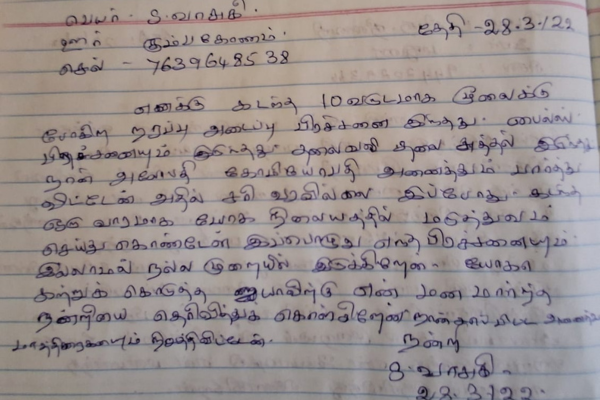 பெயர் - S. வாசுகி. தேதி - 28.3/22
ஊர் கும்பகோணம்.
செல் - 7639648538
எனக்கு கடந்த 10 வருடமாக மூளைக்கு
போகிற நரம்பு அடைப்பு பிரச்சனை இருந்தது. பைல்ஸ்
பிரச்சனையும் இருந்தது. தலைவலி தலை சுத்தல் இருந்தது
நான் அலோபதி கோமியோபதி அனைத்தும் பார்த்து
விட்டேன் அதில் சரி வரவில்லை இப்போது கடந்த
ஒரு வாரமாக யோகா நிலையத்தில் மருத்துவம்
செய்து கொண்டேன் இப்பொழுது எந்த பிரச்சனையும்
இல்லாமல் நல்ல முறையில் இருக்கிறேன். யோகா
கற்றுக் கொடுத்த ஐயாவிற்கு என் மன மார்ந்த
நன்றியை தெரிவித்துக் கொள்கிறேன் நான்
மாத்திரைகளையும் நிறுத்திவிட்டேன். நன்றி
S. வாசுகி.
28.3/22.